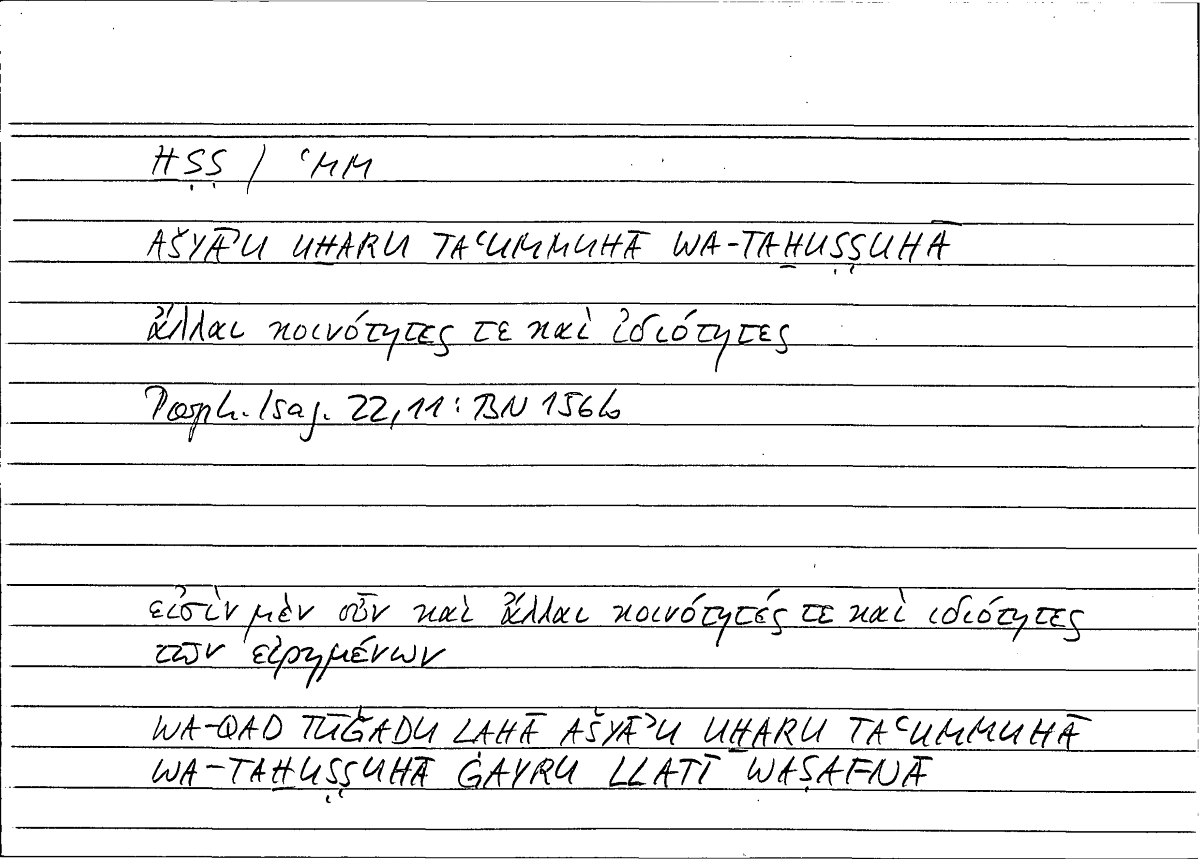 ḪṢṢ / ʿMM
AŠYĀʾU UḪARU TAʿUMMUHĀ WA-TAḪUṢṢUHĀ
ἄλλαι κοινότητες τε καὶ ἰδιότητες
Porph. Isag. 22,11: BN 156b
εἰσὶν μὲν οὖν καὶ ἄλλαι κοινότητές τε καὶ ἰδιότητες
τῶν εἰρημένων
WA-QAD TŪǦADU LAHĀ AŠYĀʾU UḪARU TAʿUMMUHĀ
WA-TAḪUṢṢUHĀ ĠAYRU LLATĪ WAṢAFNĀ